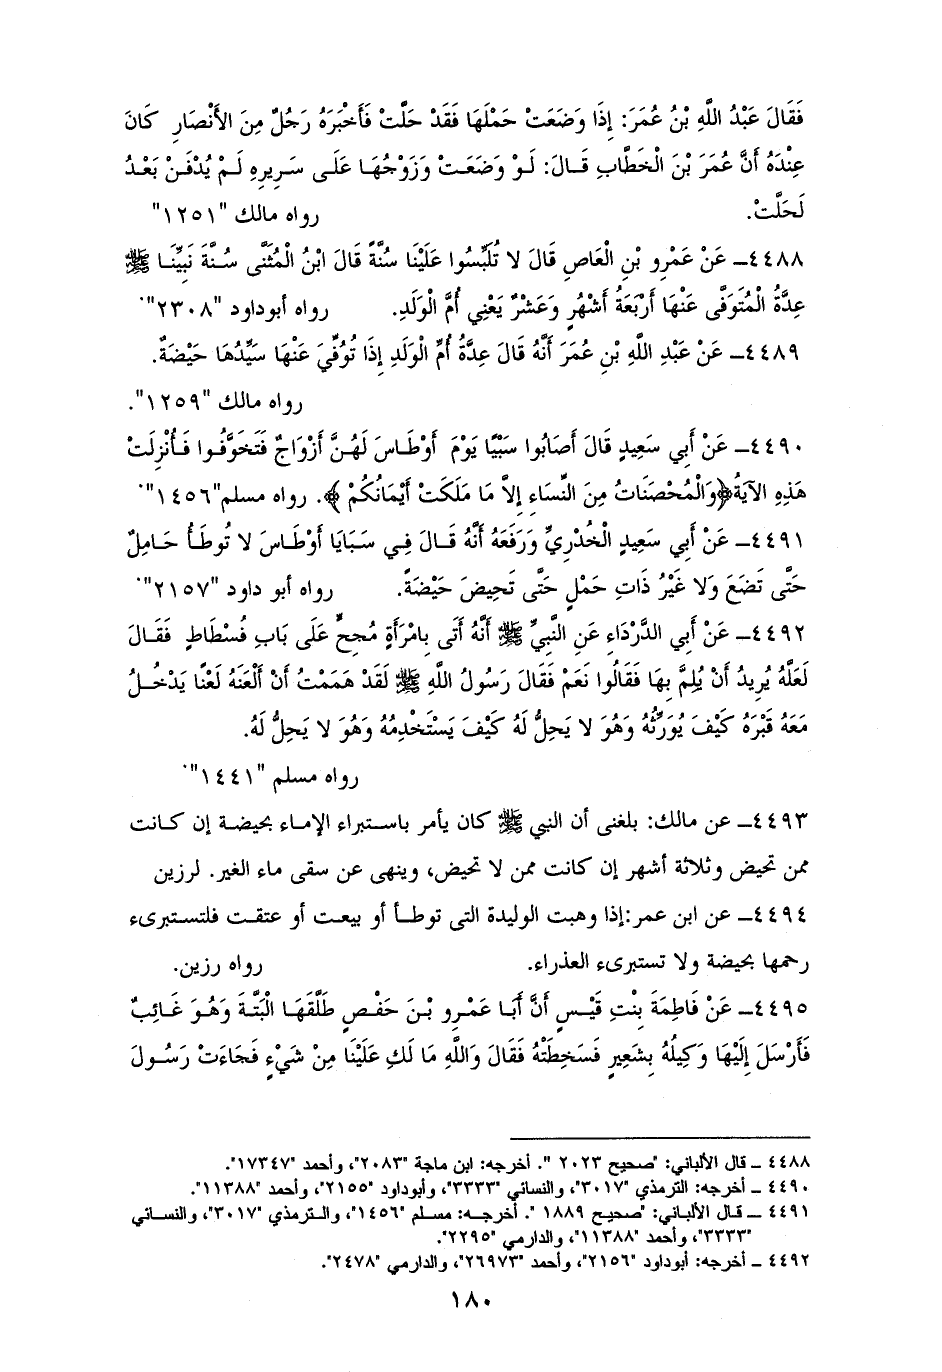 فَقَالَ عَبْدُ اللَّهِ بْنُ عُمَرَ: إِذَا وَضَعَتْ حَمْلَهَا فَقَدْ حَلَّتْ فَأَخْبَرَهُ رَجُلٌ مِنَ الأَنْصَارِ كَانَ
عِنْدَهُ أَنَّ عُمَرَ بْنَ الْخَطَّابِ قَالَ: لَوْ وَضَعَتْ وَزَوْجُهَا عَلَى سَرِيرِهِ لَمْ يُدْفَنْ بَعْدُ
لَحَلَّتْ. رواه مالك "١٢٥١"
٤٤٨٨ـ عَنْ عَمْرِو بْنِ الْعَاصِ قَالَ لا تُلَبِّسُوا عَلَيْنَا سُنَّةً قَالَ ابْنُ الْمُثَنَّى سُنَّةَ نَبِيِّنَا ﷺ
عِدَّةُ الْمُتَوَفَّى عَنْهَا أَرْبَعَةُ أَشْهُرٍ وَعَشْرٌ يَعْنِي أُمَّ الْوَلَدِ. رواه أبوداود "٢٣٠٨".
٤٤٨٩ـ عَنْ عَبْدِ اللَّهِ بْنِ عُمَرَ أَنَّهُ قَالَ عِدَّةُ أُمِّ الْوَلَدِ إِذَا تُوُفِّيَ عَنْهَا سَيِّدُهَا حَيْضَةٌ.
رواه مالك "١٢٥٩".
٤٤٩٠ـ عَنْ أَبِي سَعِيدٍ قَالَ أَصَابُوا سَبْيًا يَوْمَ أَوْطَاسَ لَهُنَّ أَزْوَاجٌ فَتَخَوَّفُوا فَأُنْزِلَتْ
هَذِهِ الآيَةُ ﴿وَالْمُحْصَنَاتُ مِنَ النِّسَاءِ إِلاَّ مَا مَلَكَتْ أَيْمَانُكُمْ﴾. رواه مسلم"١٤٥٦".
٤٤٩١ـ عَنْ أَبِي سَعِيدٍ الْخُدْرِيِّ وَرَفَعَهُ أَنَّهُ قَالَ فِي سَبَايَا أَوْطَاسَ لا تُوطَأُ حَامِلٌ
حَتَّى تَضَعَ وَلا غَيْرُ ذَاتِ حَمْلٍ حَتَّى تَحِيضَ حَيْضَةً. رواه أبو داود "٢١٥٧".
٤٤٩٢ـ عَنْ أَبِي الدَّرْدَاءِ عَنِ النَّبِيِّ ﷺ أَنَّهُ أَتَى بِامْرَأَةٍ مُجِحٍّ عَلَى بَابِ فُسْطَاطٍ فَقَالَ
لَعَلَّهُ يُرِيدُ أَنْ يُلِمَّ بِهَا فَقَالُوا نَعَمْ فَقَالَ رَسُولُ اللَّهِ ﷺ لَقَدْ هَمَمْتُ أَنْ أَلْعَنَهُ لَعْنًا يَدْخُلُ
مَعَهُ قَبْرَهُ كَيْفَ يُوَرِّثُهُ وَهُوَ لا يَحِلُّ لَهُ كَيْفَ يَسْتَخْدِمُهُ وَهُوَ لا يَحِلُّ لَهُ.
رواه مسلم "١٤٤١".
٤٤٩٣ـ عن مالك: بلغنى أن النبي ﷺ كان يأمر باستبراء الإماء بحيضة إن كانت
ممن تحيض وثلاثة أشهر إن كانت ممن لا تحيض، وينهى عن سقى ماء الغير. لرزين
٤٤٩٤ـ عن ابن عمر:إذا وهبت الوليدة التى توطأ أو بيعت أو عتقت فلتستبرىء
رحمها بحيضة ولا تستبرىء العذراء. رواه رزين.
٤٤٩٥ـ عَنْ فَاطِمَةَ بِنْتِ قَيْسٍ أَنَّ أَبَا عَمْرِو بْنَ حَفْصٍ طَلَّقَهَا الْبَتَّةَ وَهُوَ غَائِبٌ
فَأَرْسَلَ إِلَيْهَا وَكِيلُهُ بِشَعِيرٍ فَسَخِطَتْهُ فَقَالَ وَاللَّهِ مَا لَكِ عَلَيْنَا مِنْ شَيْءٍ فَجَاءَتْ رَسُولَ
٤٤٨٨ ـ قال الألباني: "صحيح ٢٠٢٣ ". أخرجه: ابن ماجة "٢٠٨٣"، وأحمد "١٧٣٤٧".
٤٤٩٠ ـ أخرجه: الترمذي "٣٠١٧"، والنسائي "٣٣٣٣"، وأبوداود "٢١٥٥"، وأحمد "١١٣٨٨".
٤٤٩١ ـ قال الألباني: "صحيح ١٨٨٩ ". أخرجه: مسلم "١٤٥٦"، والترمذي "٣٠١٧"، والنسائي
"٣٣٣٣"، وأحمد "١١٣٨٨"، والدارمي "٢٢٩٥".
٤٤٩٢ ـ أخرجه: أبوداود "٢١٥٦"، وأحمد "٢٦٩٧٣"، والدارمي "٢٤٧٨".
١٨٠